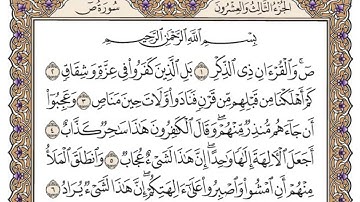 الجزء الثالث والعشرون
سورة ص
بِسْمِ اللَّهِ الرَّحْمَٰنِ الرَّحِيمِ
صٓ ۚ وَالْقُرْءَانِ ذِي الذِّكْرِ ١ بَلِ الَّذِينَ كَفَرُوا فِي عِزَّةٍ وَشِقَاقٍ ٢
كَمْ أَهْلَكْنَا مِن قَبْلِهِم مِّن قَرْنٍ فَنَادَوا وَّلَاتَ حِينَ مَنَاصٍ ٣ وَعَجِبُوا
أَن جَاءَهُم مُّنذِرٌ مِّنْهُمْ ۖ وَقَالَ الْكَٰفِرُونَ هَٰذَا سَٰحِرٌ كَذَّابٌ ٤
أَجَعَلَ الْءَالِهَةَ إِلَٰهًا وَٰحِدًا ۖ إِنَّ هَٰذَا لَشَيْءٌ عُجَابٌ ٥ وَانطَلَقَ الْمَلَأُ
مِنْهُمْ أَنِ امْشُوا وَاصْبِرُوا عَلَىٰ ءَالِهَتِكُمْ ۖ إِنَّ هَٰذَا لَشَيْءٌ يُرَادُ ٦